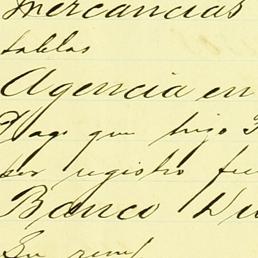 Mercancias
tablas
Agencia en
Pago que hizo
por registro
Banco
Su